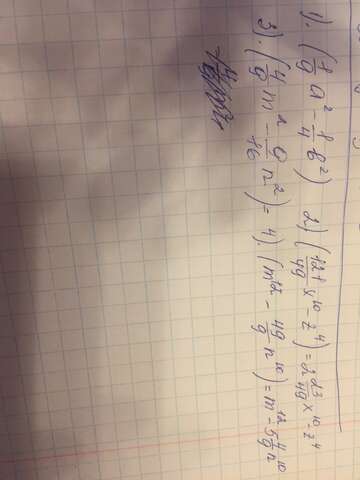 1). (1/9 a² - 1/4 b²) 2) (121/49 x¹⁰ - z⁴) = 2 23/49 x¹⁰ - z⁴
3). (4/9 m² - 9/16 n²) = 4). (m¹² - 49/9 n¹⁰) = m¹² - 5 4/9 n¹⁰